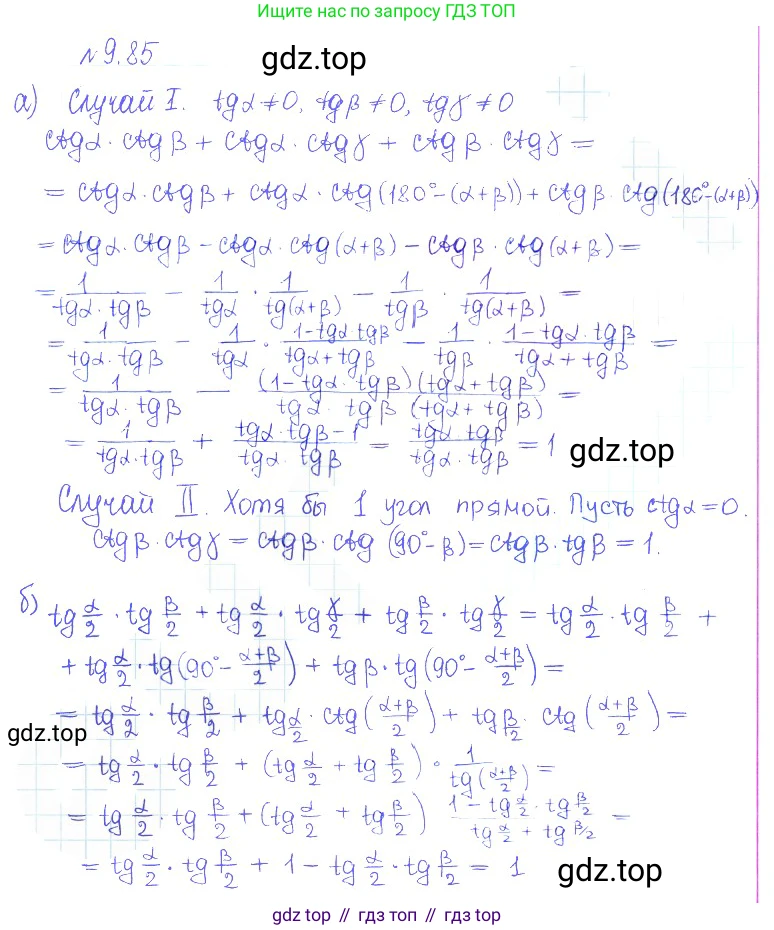 Ищите нас по запросу ГДЗ ТОП
№9.85
gdz.top
а) Случай I. tgα≠0, tgβ≠0, tgγ≠0
ctgα·ctgβ + ctgα·ctgγ + ctgβ·ctgγ =
= ctgα·ctgβ + ctgα·ctg(180°-(α+β)) + ctgβ·ctg(180°-(α+β))
= ctgα·ctgβ - ctgα·ctg(α+β) - ctgβ·ctg(α+β) =
= 1/(tgα·tgβ) - 1/tgα · 1/tg(α+β) - 1/tgβ · 1/tg(α+β) =
= 1/(tgα·tgβ) - 1/tgα · (1-tgα·tgβ)/(tgα+tgβ) - 1/tgβ · (1-tgα·tgβ)/(tgα+tgβ) =
= 1/(tgα·tgβ) - (1-tgα·tgβ)(tgα+tgβ)/(tgα·tgβ(tgα+tgβ)) =
= 1/(tgα·tgβ) + (tgα·tgβ-1)/(tgα·tgβ) = (tgα·tgβ)/(tgα·tgβ) = 1
gdz.top
Случай II. Хотя бы 1 угол прямой. Пусть ctgα=0.
ctgβ·ctgγ = ctgβ·ctg(90°-β) = ctgβ·tgβ = 1.
б) tg α/2 · tg β/2 + tg α/2 · tg γ/2 + tg β/2 · tg γ/2 = tg α/2 · tg β/2 +
+ tg α/2 · tg(90° - (α+β)/2) + tgβ·tg(90° - (α+β)/2) =
= tg α/2 · tg β/2 + tg α/2 · ctg((α+β)/2) + tg β/2 · ctg((α+β)/2) =
gdz.top
= tg α/2 · tg β/2 + (tg α/2 + tg β/2) · 1/tg((α+β)/2) =
= tg α/2 · tg β/2 + (tg α/2 + tg β/2) (1 - tg α/2 · tg β/2)/(tg α/2 + tg β/2) =
= tg α/2 · tg β/2 + 1 - tg α/2 · tg β/2 = 1
gdz.top
gdz top // гдз топ // gdz top